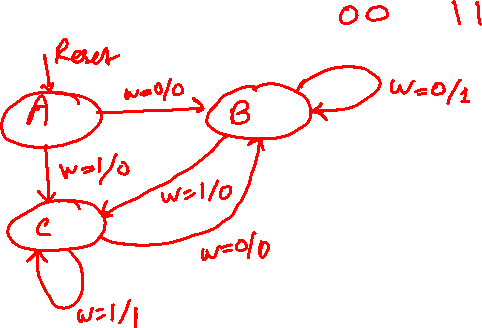 00 11
Reset
A
w=0/0
B
w=0/1
w=1/0
w=1/0
C
w=0/0
w=1/1